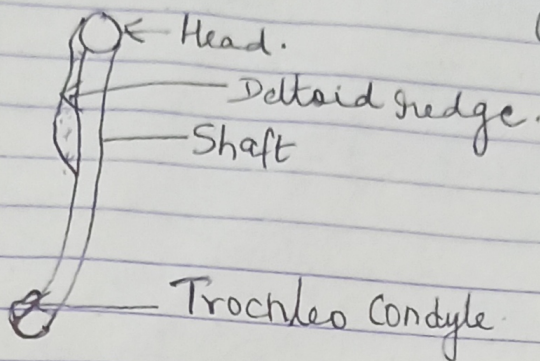 Head.
Deltoid redge.
Shaft
Trochleo Condyle.